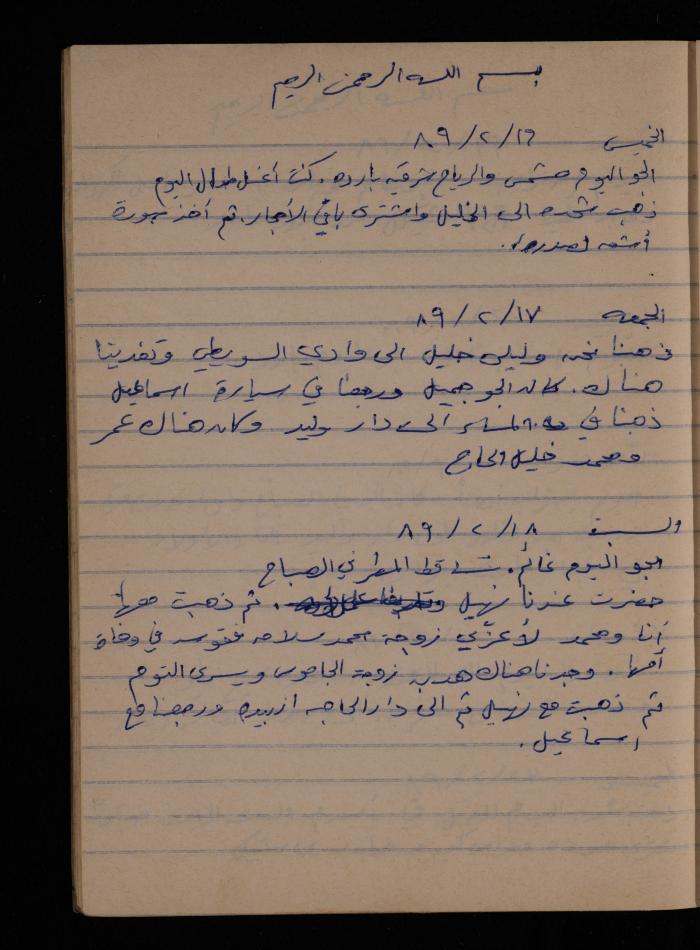 بسم الله الرحمن الرحيم
الخميس ١٦/٢/٨٩
الجو اليوم مشمس والرياح شرقيه بارده. كنت أغسل طوال اليوم
ذهب شحده الى الخليل واشترى باقي الأحجار. ثم أخذ صورة
أشعه لصدره.
الجمعه ١٧/٢/٨٩
ذهبنا نحن وليلى خليل الى وادي السويطي وتغدينا
هناك. كان الجو جميل ورجعنا في سيارة اسماعيل
ذهبنا في المساء الى دار وليد وكان هناك عمر
ومحمد خليل الحاج
السبت ١٨/٢/٨٩
الجو اليوم غائم. تساقط المطر في الصباح
حضرت عندنا نهيل . ثم ذهبت معها
أنا ومحمد لأعزّي زوجة محمد سلامه في وفاة
أمها. وجدنا هناك هدى زوجة الجاموس ويسرى التوم
ثم ذهبت مع نهيل ثم الى دار الحاجه ازبيده ورجعنا مع
اسماعيل.